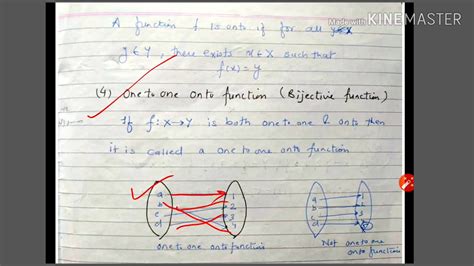 Made with KINEMASTER
A function f is onto if for all y∈X
y∈Y, there exists x∈X such that
f(x)=y
(4) One to one onto function (Bijective function)
If f: X→Y is both one to one & onto then
it is called a one to one onto function
a 1
b 2
c 3
d 4
One to one onto function
a 1
b 2
c 3
d
Not one to one
onto function